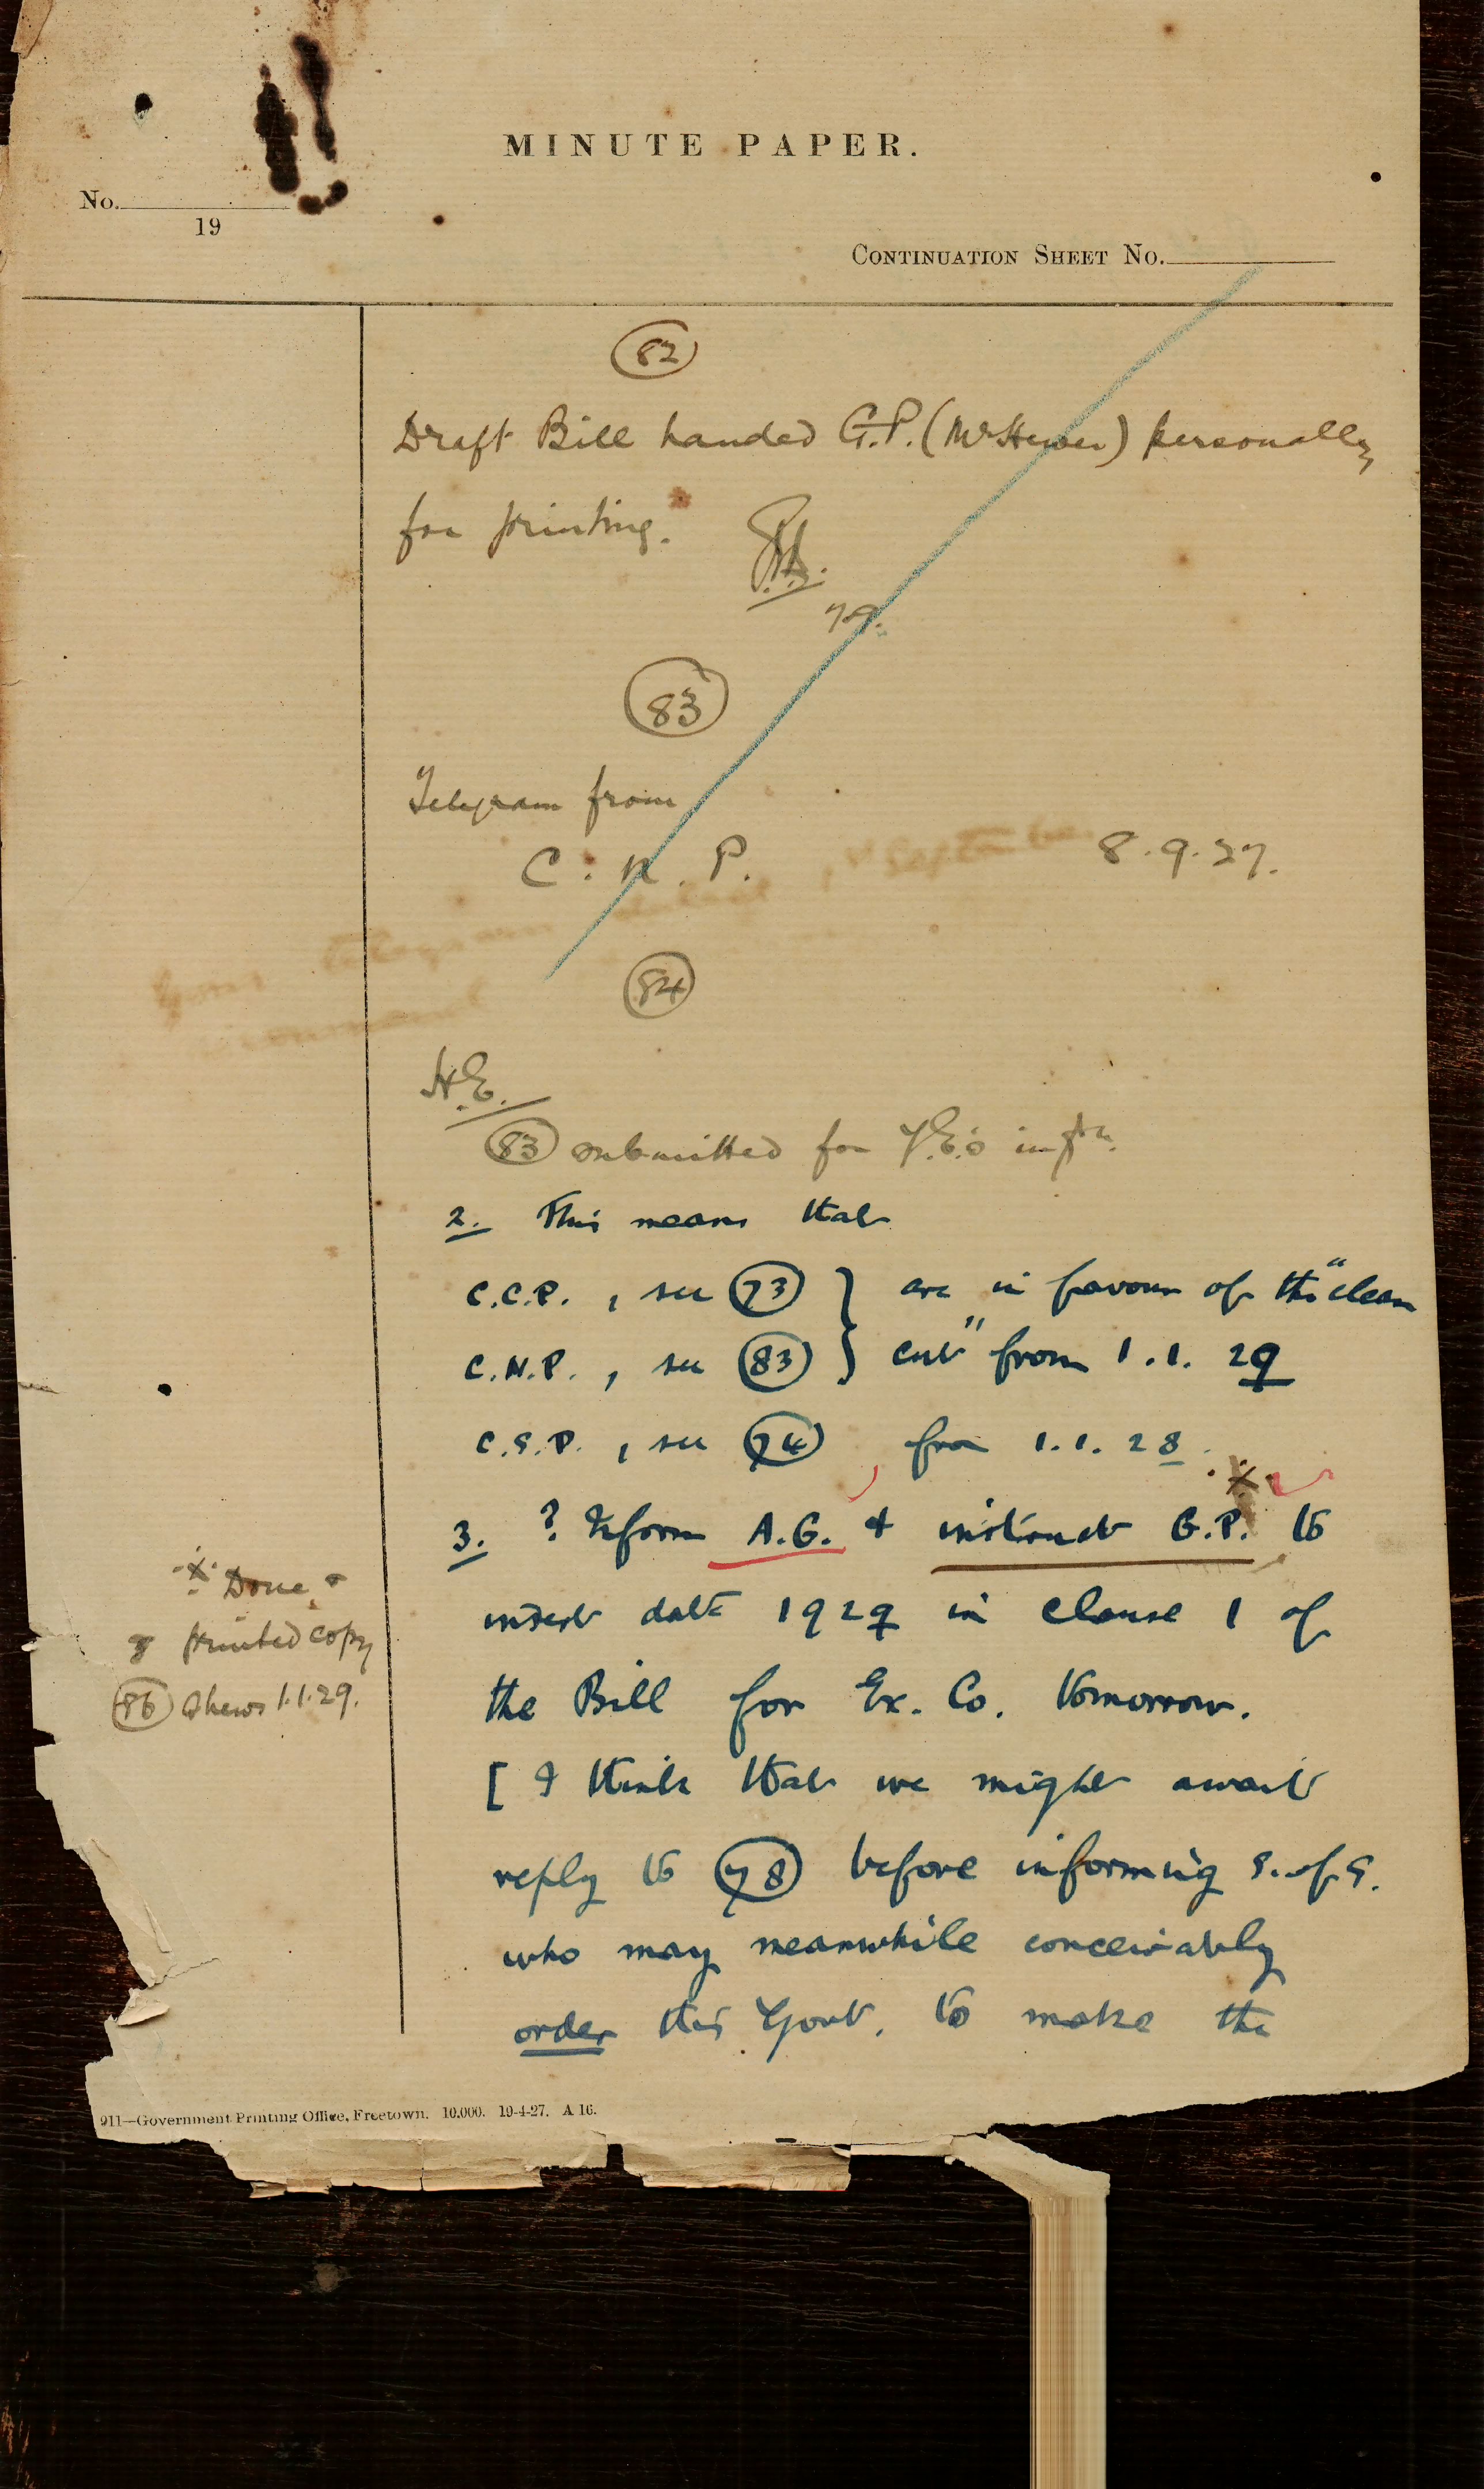 MINUTE PAPER.
No.
19
CONTINUATION SHEET No.
82
Draft Bill handed G.P. (Mr Hewer) personally
for printing.
7.9.
83
Telegram from
C. N. P. 8.9.27.
84
H.E.
83 submitted for Y.E.'s infn.
2. This means that
C.C.P., see 73 } are in favour of the "clean
C.N.P., see 83 } cut" from 1.1.29
C.S.P., see 74, from 1.1.28.
3. ? Inform A.G. & instruct G.P. to
insert date 1929 in clause 1 of
the Bill for Ex. Co. tomorrow.
[ I think that we might await
reply to 78 before informing S. of S.
who may meanwhile conceivably
order this Govt. to make the
x Done &
printed copy
86 shews 1.1.29.
911—Government Printing Office, Freetown. 10,000. 19-4-27. A 16.